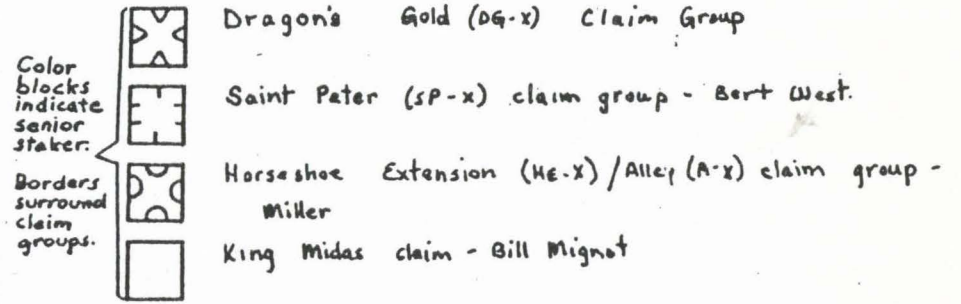 Color
blocks
indicate
senior
staker.
Borders
surround
claim
groups.
Dragon's Gold (DG-X) Claim Group
Saint Peter (SP-X) claim group - Bert West.
Horseshoe Extension (HE-X) / Alley (A-X) claim group -
Miller
King Midas claim - Bill Mignot